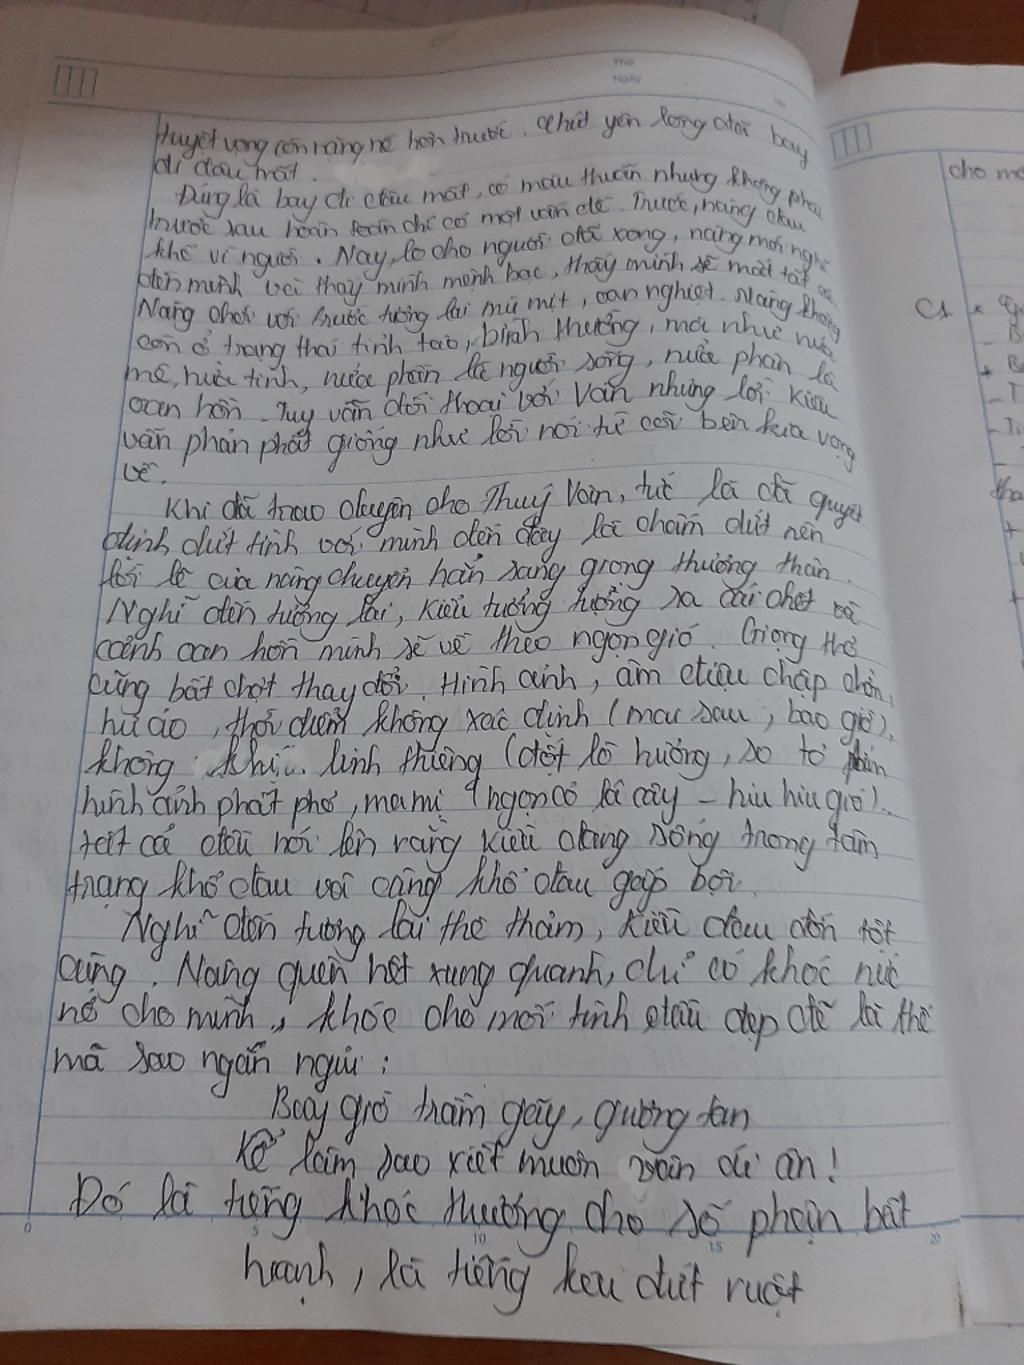 Thứ
Ngày
tuyệt vọng còn nặng nề hơn trước. Chút yên lòng đã bay
đi đâu mất.
Đúng là bay đi đâu mất, có mâu thuẫn nhưng không phải
trước sau hoàn toàn chỉ có một vấn đề. Trước, nàng đau
khổ vì người. Nay, lo cho người đã xong, nàng mới nghĩ
đến mình và thấy mình mệnh bạc, thấy mình sẽ mất tất cả.
Nàng chới với trước tương lai mù mịt, oan nghiệt. Nàng không
còn ở trạng thái tỉnh táo, bình thường, mà như nửa
mê, nửa tỉnh, nửa phần là người sống, nửa phần là
oan hồn. Tuy vẫn đối thoại với Vân nhưng lời Kiều
văn phản phất giống như lời nói từ cõi bên kia vọng
về.
Khi đã trao duyên cho Thuý Vân, tức là đã quyết
định dứt tình với mình đến đây là chấm dứt nên
lời lẽ của nàng chuyển hẳn sang giọng thương thân.
Nghĩ đến tương lai, Kiều tưởng tượng ra cái chết và
cảnh oan hồn mình sẽ về theo ngọn gió. Giọng thơ
cũng bất chợt thay đổi. Hình ảnh, âm điệu chập chờn,
hư ảo, thời điểm không xác định (mai sau, bao giờ),
không khí linh thiêng (đốt lò hương, so tơ phím
hình ảnh phất phơ, ma mị (ngọn cỏ lá cây – hiu hiu gió)...
tất cả đều nói lên rằng Kiều đang sống trong tâm
trạng khổ đau và càng khổ đau gấp bội.
Nghĩ đến tương lai thê thảm, Kiều đau đớn tột
cùng. Nàng quên hết xung quanh, chỉ có khóc nức
nở cho mình, khóc cho mối tình đầu đẹp đẽ là thế
mà sao ngắn ngủi:
Bây giờ trâm gãy, gương tan
Kể làm sao xiết muôn vàn ái ân!
Đó là tiếng khóc thương cho số phận bất
hạnh, là tiếng kêu đứt ruột
0 5 10 15 20
cho mo
C1